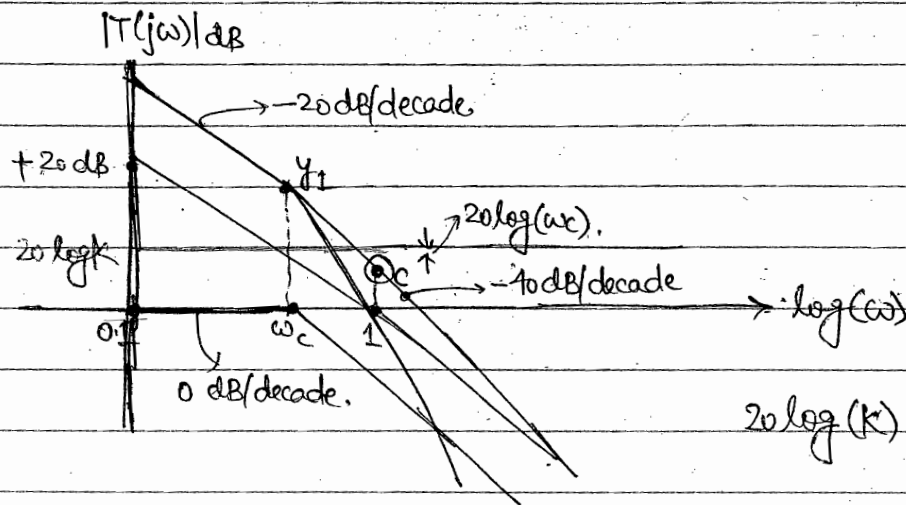 |T(jω)| dB
→ -20 dB/decade
+20 dB
y1
20 log(ωc).
20 logk
C
-40 dB/decade
0.1
ωc
1
log(ω)
0 dB/decade.
20 log(K)